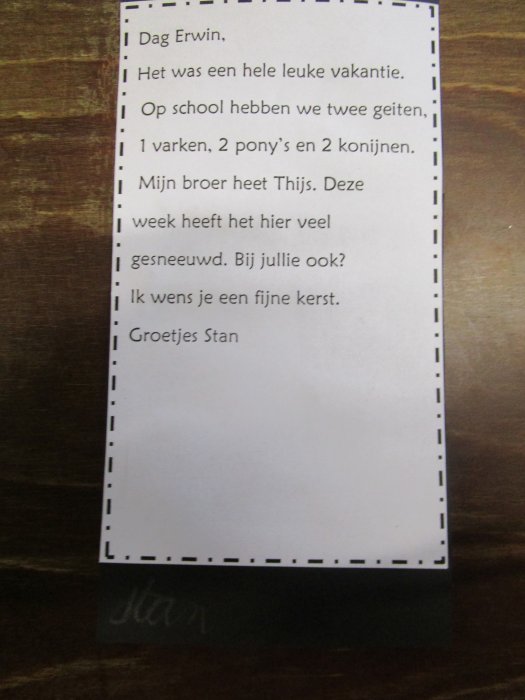 Dag Erwin,
Het was een hele leuke vakantie.
Op school hebben we twee geiten,
1 varken, 2 pony's en 2 konijnen.
Mijn broer heet Thijs. Deze
week heeft het hier veel
gesneeuwd. Bij jullie ook?
Ik wens je een fijne kerst.
Groetjes Stan
stan